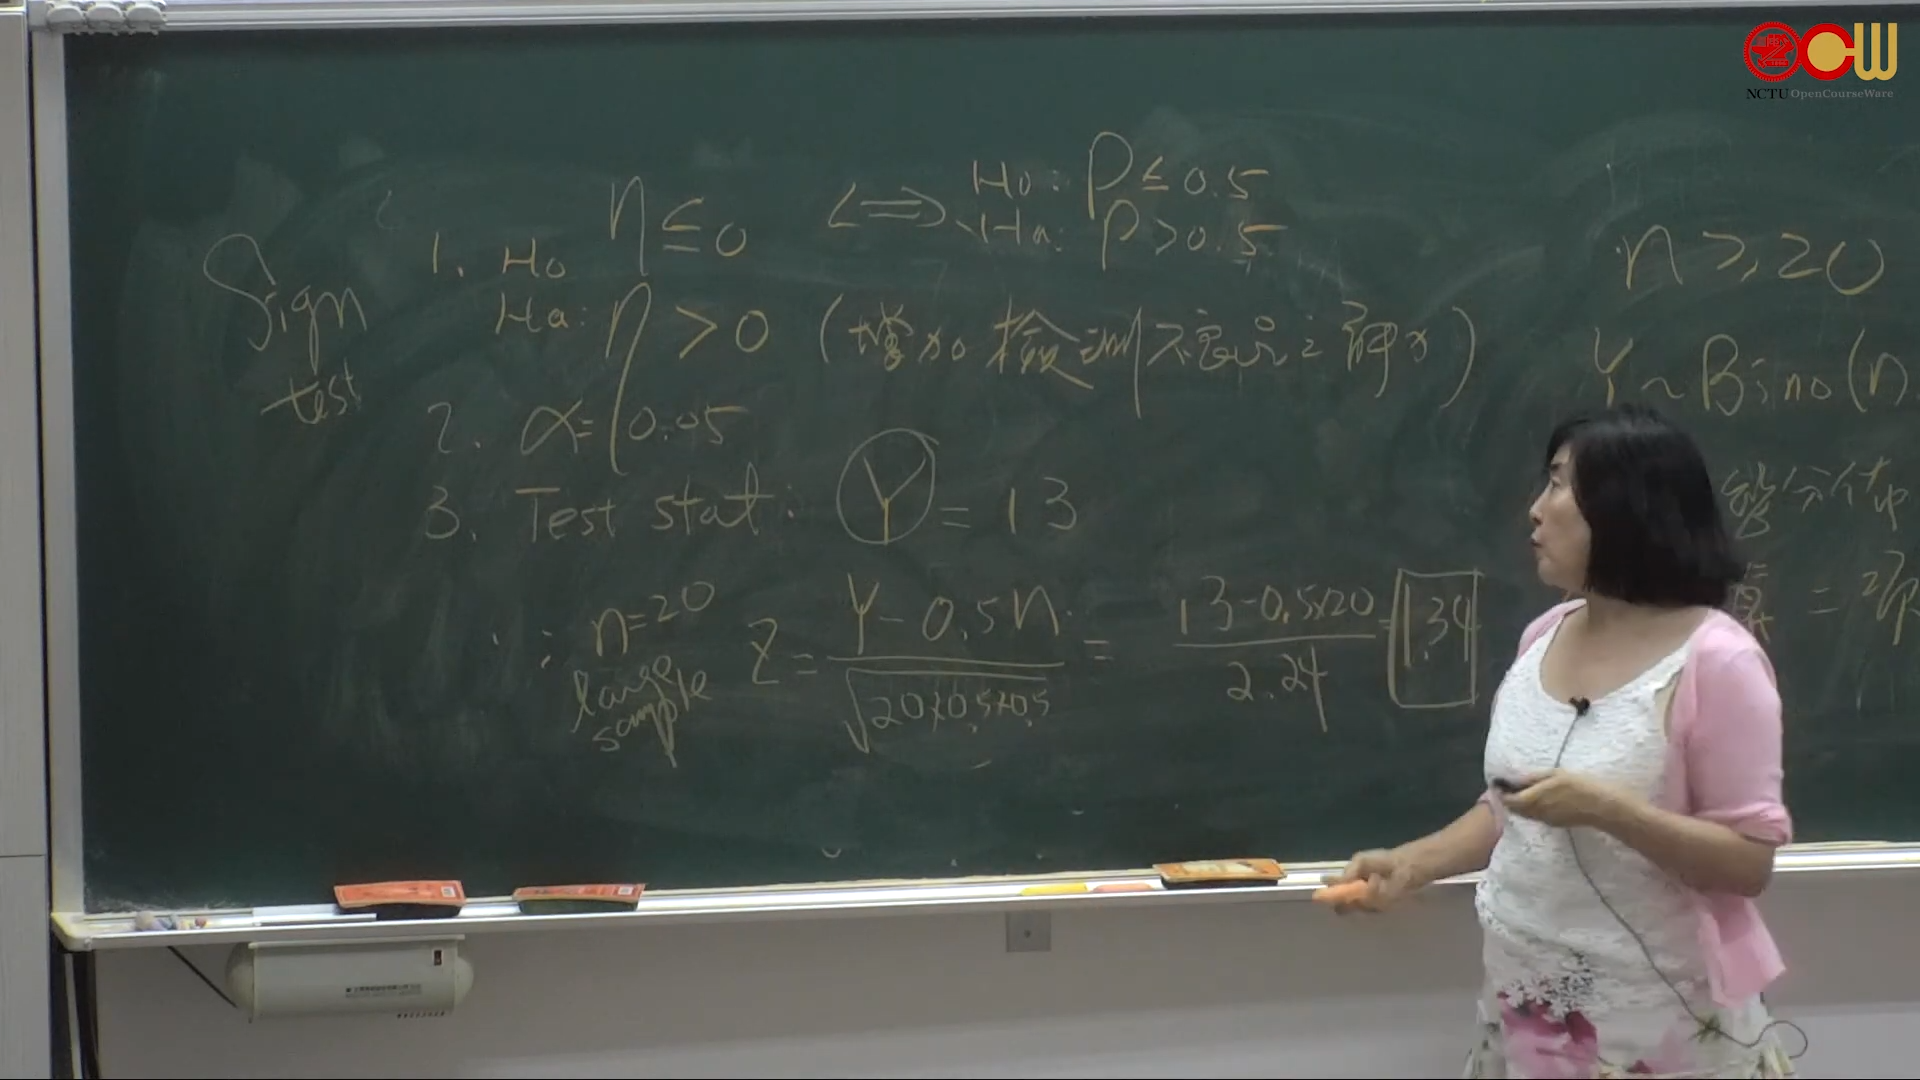 NCTU OpenCourseWare
Sign test
1. Ho η ≤ 0 <=> Ho: P ≤ 0.5
Ha: P > 0.5
Ha: η > 0 (增加檢測不良品之解力)
2. α = 0.05
3. Test stat: Y = 13
∵ n=20
large
sample
Z = (Y - 0.5n) / √(20x0.5x0.5) = (13-0.5x20) / 2.24 = 1.34
n ≥ 20
Y ~ Bino(n,
分佈
=